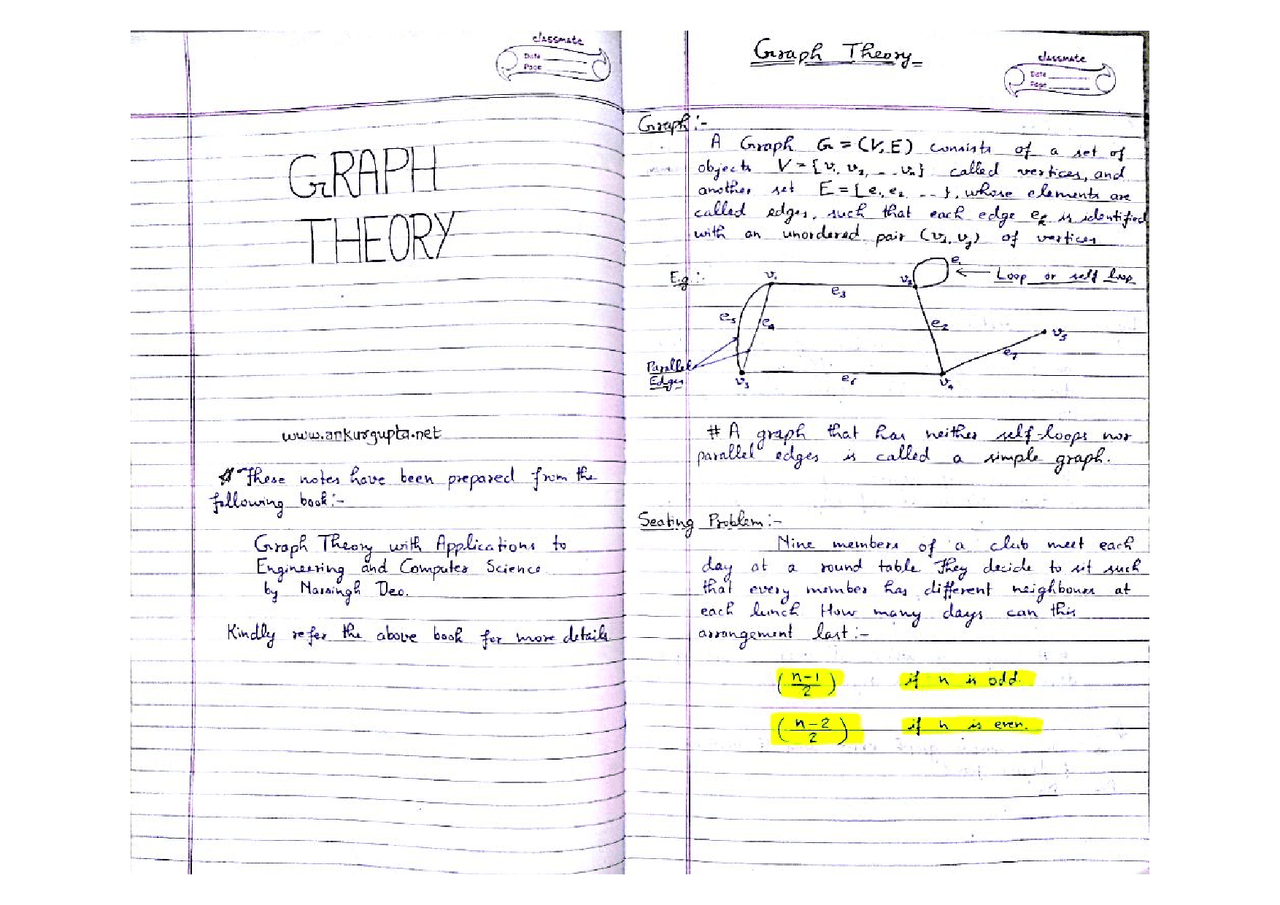 classmate
Date
Page
GRAPH
THEORY
www.ankurgupta.net
These notes have been prepared from the
following book:-
Graph Theory with Applications to
Engineering and Computer Science
by Narsingh Deo.
Kindly refer the above book for more details
Graph Theory
classmate
Date
Page
Graph:-
A Graph G = (V, E) consists of a set of
objects V = {v₁ v₂, ... vₙ} called vertices, and
another set E = {e₁ e₂ ... }, whose elements are
called edges, such that each edge eₖ is identified
with an unordered pair (vᵢ, vⱼ) of vertices
E.g:-
v₁
v₂
e₁
Loop or self loop
e₃
e₅
e₄
e₂
v₅
e₇
Parallel
Edges
v₃
e₆
v₄
# A graph that has neither self-loops nor
parallel edges is called a simple graph.
Seating Problem:-
Nine members of a club meet each
day at a round table They decide to sit such
that every member has different neighbours at
each lunch How many days can this
arrangement last:-
(n-1/2) if n is odd.
(n-2/2) if n is even.